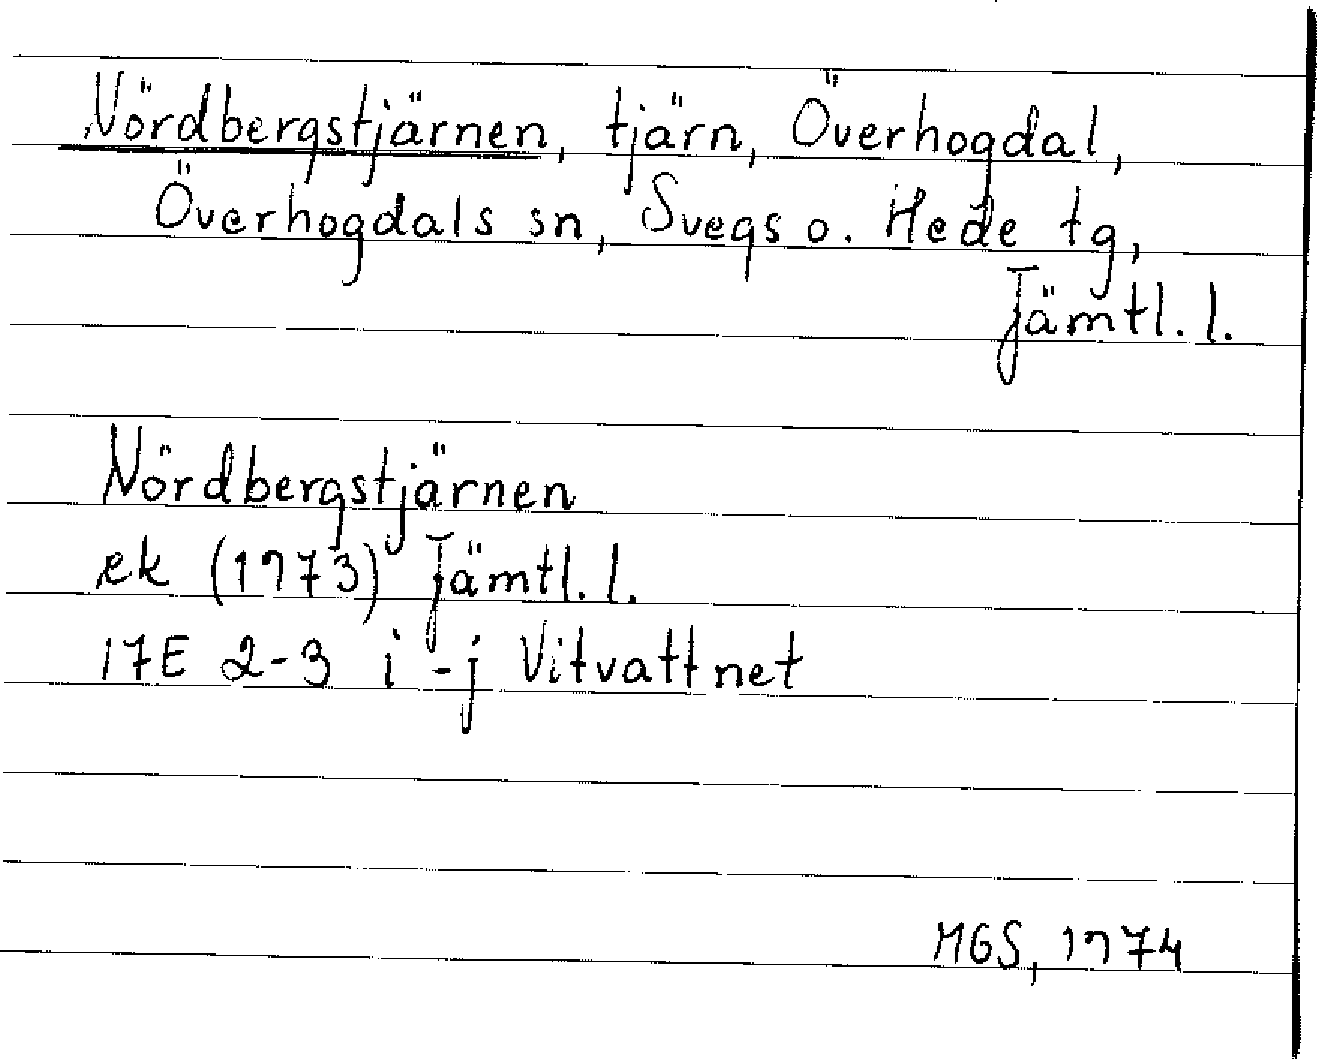 Nördbergstjärnen, tjärn, Överhogdal,
Överhogdals sn, Svegs o. Hede tg,
Jämtl. l.
Nördbergstjärnen
ek (1973) Jämtl. l.
17E 2-3 i-j Vitvattnet
MGS, 1974